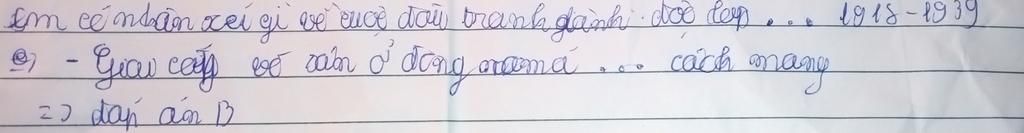 Em có nhận xét gì về cuộc đấu tranh giành độc lập ... 1918-1939
- Giai cấp vô sản ở đông nam á ... cách mạng
=> đáp án D